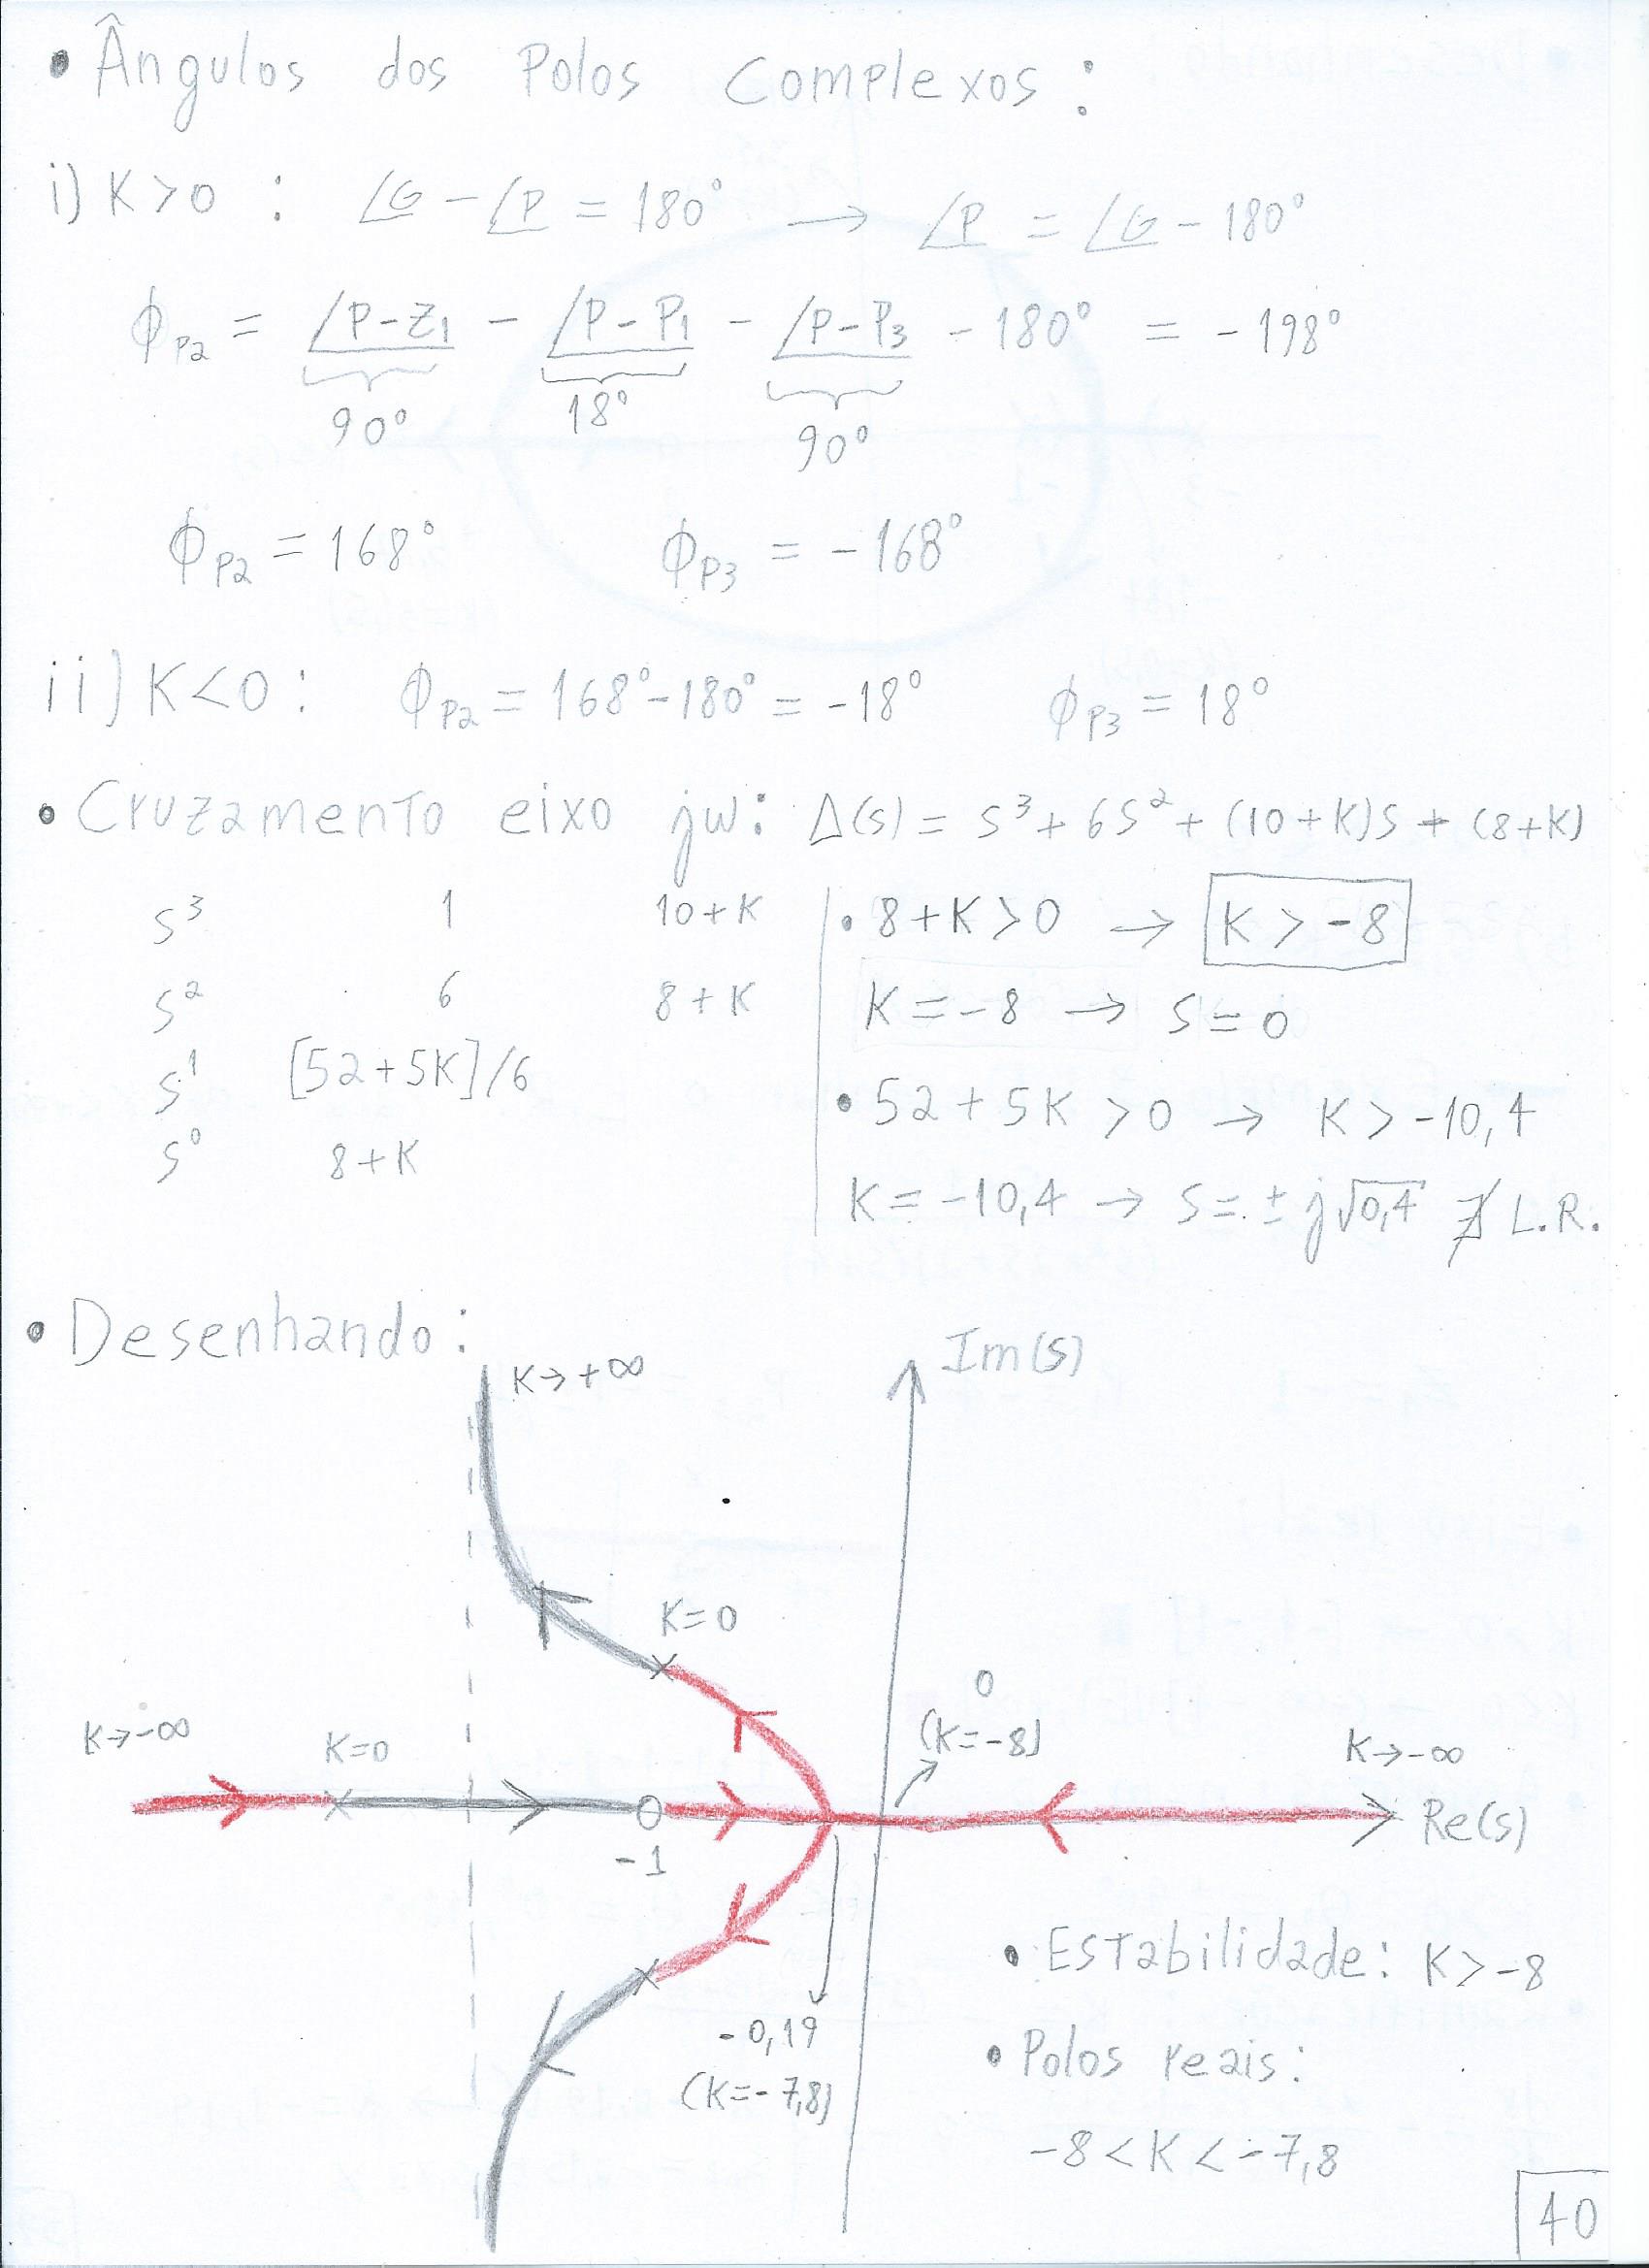 • Ângulos dos Polos Complexos:
i) K>0 : ∠G - ∠P = 180° → ∠P = ∠G - 180°
ϕP2 = ∠P-Z1 - ∠P-P1 - ∠P-P3 - 180° = -198°
90° 18° 90°
ϕP2 = 168° ϕP3 = -168°
ii) K<0: ϕP2 = 168°-180° = -18° ϕP3 = 18°
• Cruzamento eixo jw: Δ(s) = s³ + 6s² + (10+K)s + (8+K)
s³ 1 10+K
s² 6 8+K
s¹ [52+5K]/6
s⁰ 8+K
• 8+K>0 → K > -8
K = -8 → s = 0
• 52+5K > 0 → K > -10,4
K = -10,4 → s = ± j√0,4 ∄ L.R.
• Desenhando:
K→+∞
Im(s)
K=0
0
(K=-8)
K→-∞
K=0
K→-∞
Re(s)
-1
-0,19
(K=-7,8)
• Estabilidade: K>-8
• Polos reais:
-8 < K < -7,8
40